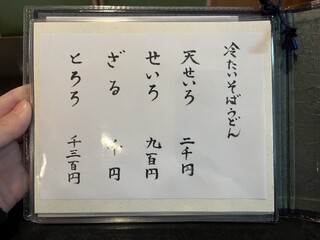 冷たいそばうどん
天せいろ 二千円
せいろ 九百円
ざる 千円
とろろ 千三百円